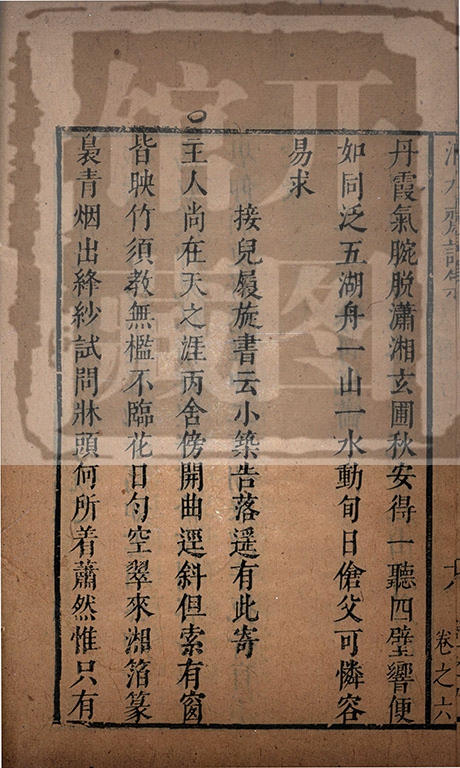 丹霞氣腕脱瀟湘玄圃秋安得一聽四壁響便
如同泛五湖舟一山一水動旬日傖父可憐容
易求
接兒履旋書云小築告落遥有此寄
○主人尚在天之涯丙舍傍開曲逕斜但索有窗
皆映竹須教無檻不臨花日勻空翠來湘箔篆
裊青烟出絳紗試問牀頭何所着蕭然惟只有
卷之六